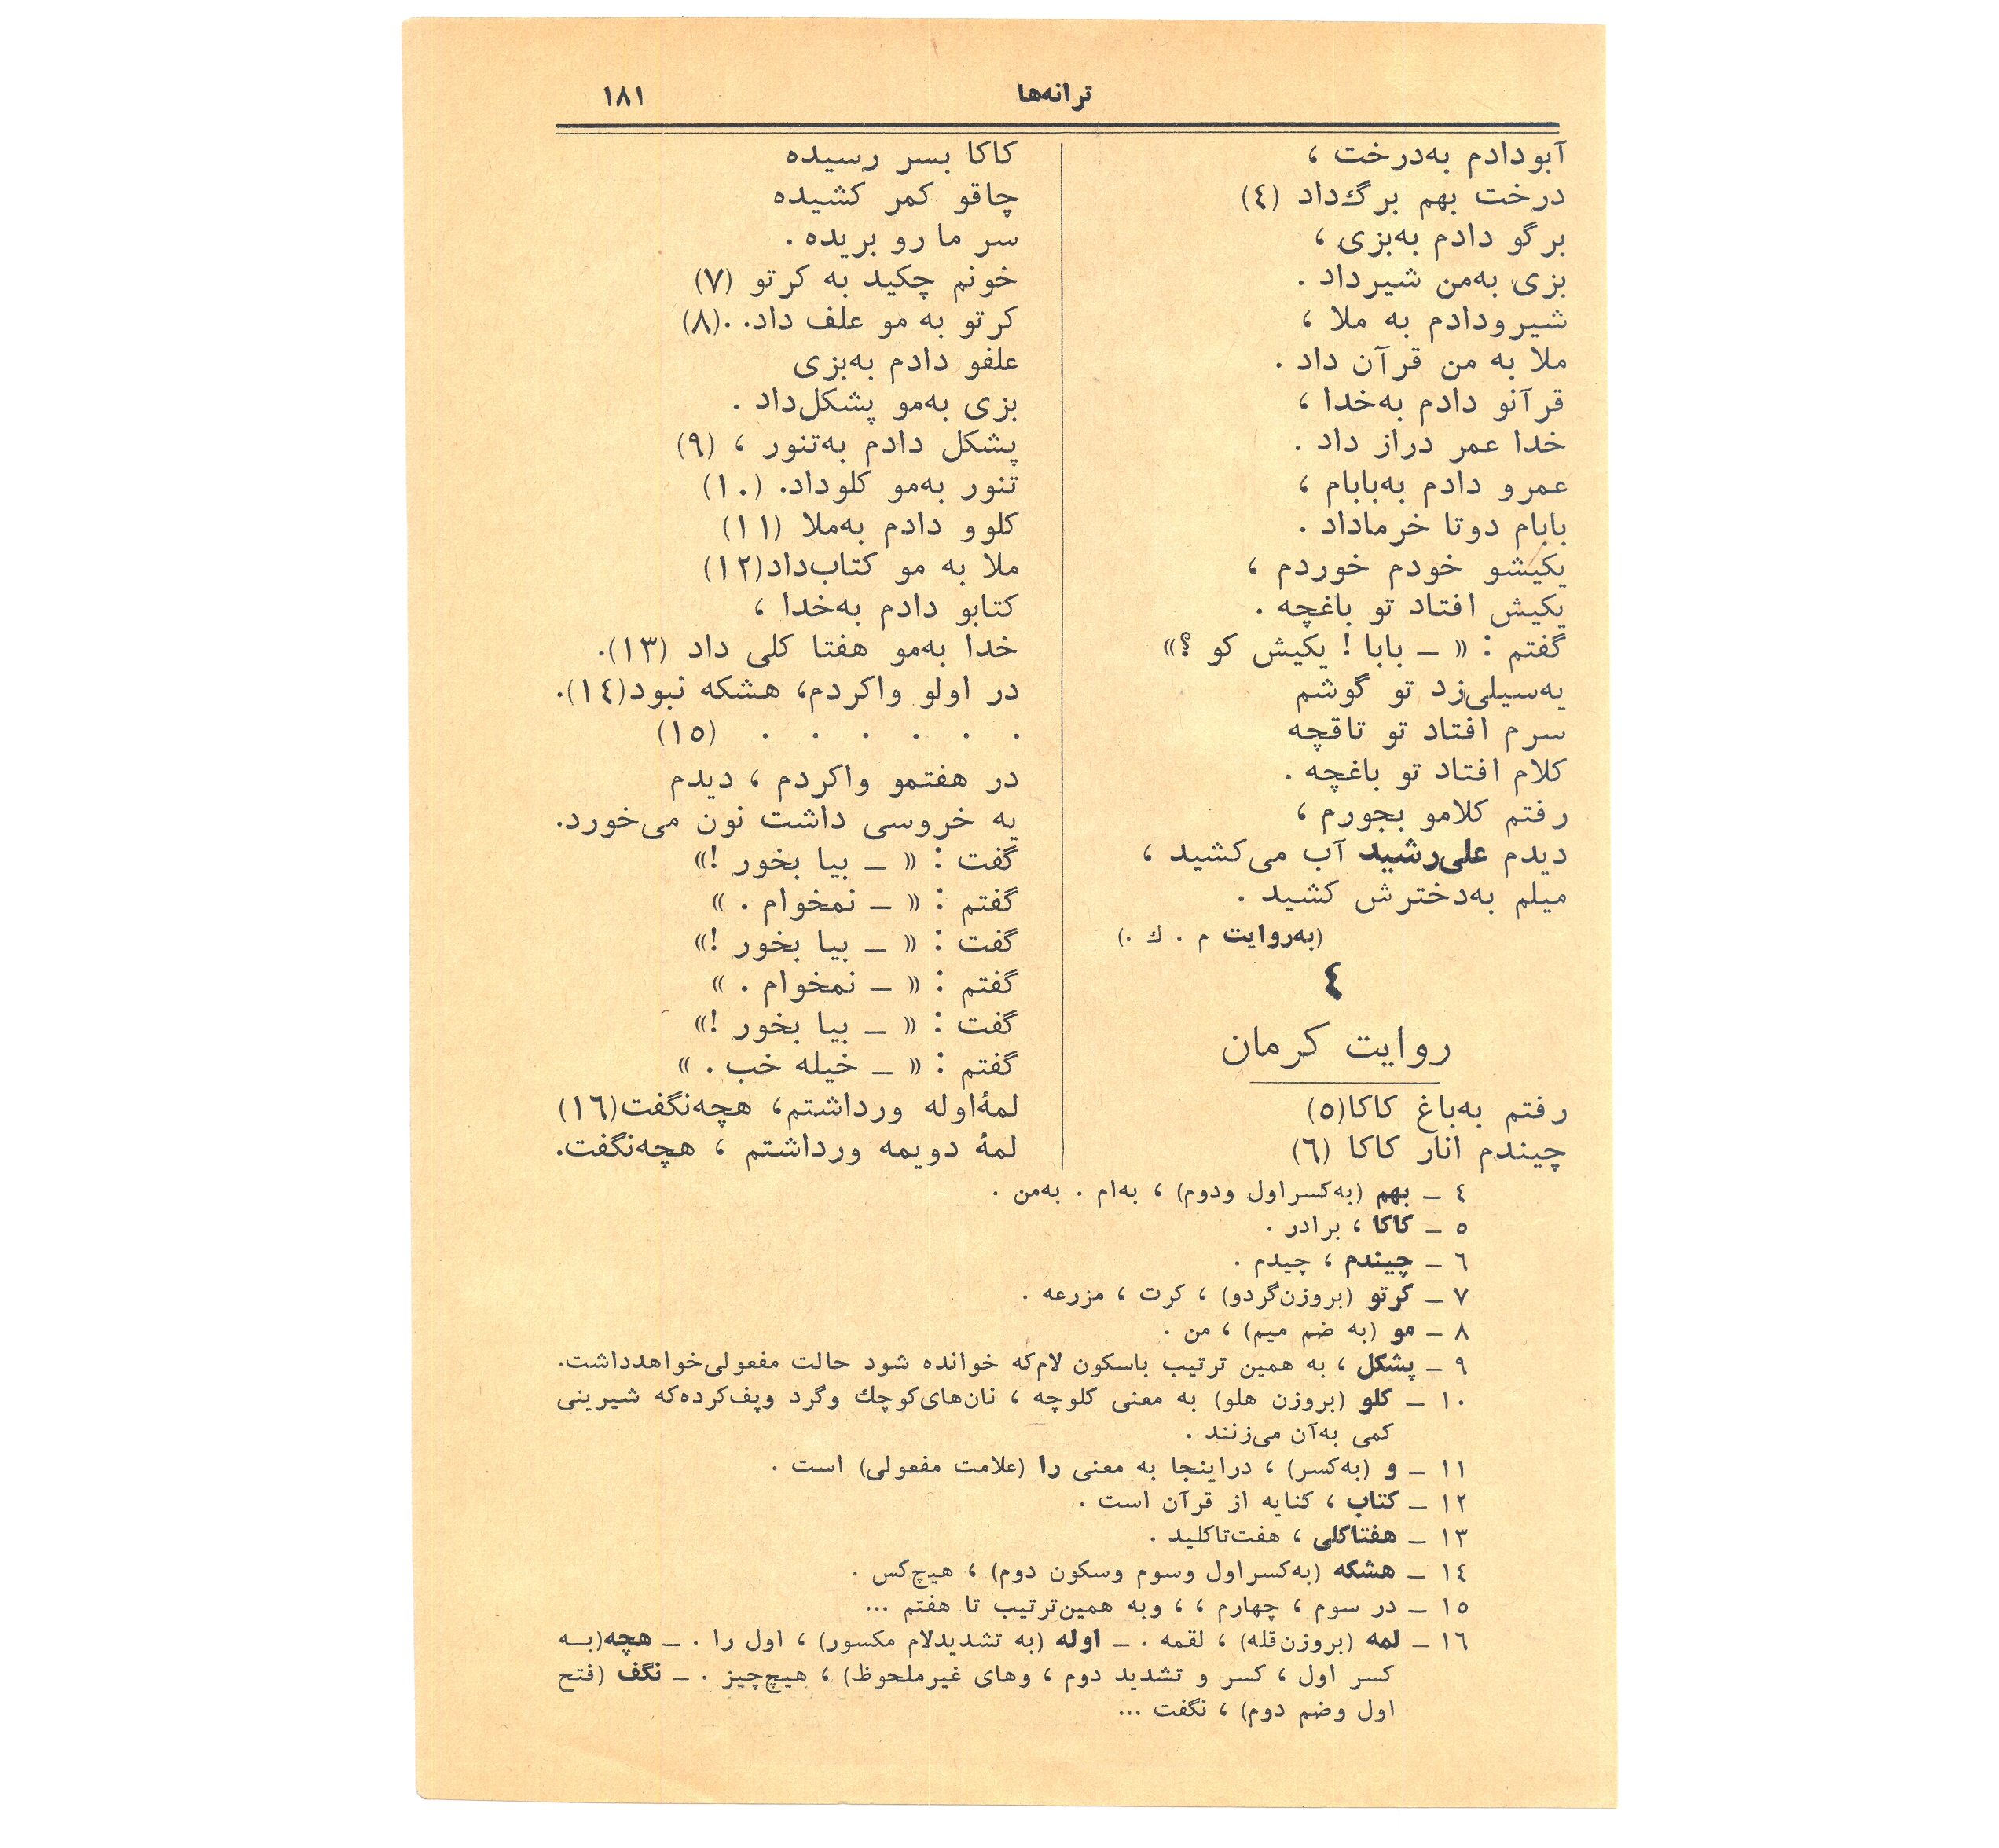 ترانه‌ها
۱۸۱
آبو دادم به‌درخت ،
درخت بهم برگ‌داد (٤)
برگو دادم به‌بزی ،
بزی به‌من شیر داد .
شیرو دادم به ملا ،
ملا به من قرآن داد .
قرآنو دادم به‌خدا ،
خدا عمر دراز داد .
عمرو دادم به‌بابام ،
بابام دوتا خرماداد .
یکیشو خودم خوردم ،
یکیش افتاد تو باغچه .
گفتم : « ــ بابا ! یکیش کو ؟»
یه‌سیلی‌زد تو گوشم
سرم افتاد تو تاقچه
کلام افتاد تو باغچه .
رفتم کلامو بجورم ،
دیدم علی‌رشید آب می‌کشید ،
میلم به‌دخترش کشید .
(به‌روایت م . ك .)
٤
روایت کرمان
رفتم به‌باغ کاکا(٥)
چیندم انار کاکا (٦)
کاکا بسر رسیده
چاقو کمر کشیده
سر ما رو بریده .
خونم چکید به کرتو (۷)
کرتو به مو علف داد. .(۸)
علفو دادم به‌بزی
بزی به‌مو پشکل‌داد .
پشکل دادم به‌تنور ، (۹)
تنور به‌مو کلوداد. (۱۰)
کلوو دادم به‌ملا (۱۱)
ملا به مو کتاب‌داد(۱۲)
کتابو دادم به‌خدا ،
خدا به‌مو هفتا کلی داد (۱۳).
در اولو واکردم، هشکه نبود(۱٤).
. . . . . . (۱٥)
در هفتمو واکردم ، دیدم
یه خروسی داشت نون می‌خورد.
گفت : « ــ بیا بخور !»
گفتم : « ــ نمخوام . »
گفت : « ــ بیا بخور !»
گفتم : « ــ نمخوام . »
گفت : « ــ بیا بخور !»
گفتم : « ــ خیله خب . »
لمهٔ‌اوله ورداشتم، هچه‌نگفت(۱٦)
لمهٔ دویمه ورداشتم ، هچه‌نگفت.
٤ ــ بهم (به‌کسر اول ودوم) ، به‌ام . به‌من .
٥ ــ کاکا ، برادر .
٦ ــ چیندم ، چیدم .
۷ ــ کرتو (بروزن‌گردو) ، کرت ، مزرعه .
۸ ــ مو (به ضم میم) ، من .
۹ ــ پشکل ، به همین ترتیب باسکون لام‌که خوانده شود حالت مفعولی‌خواهدداشت.
۱۰ ــ کلو (بروزن هلو) به معنی کلوچه ، نان‌های‌کوچك وگرد وپف‌کرده‌که شیرینی
کمی به‌آن می‌زنند .
۱۱ ــ و (به‌کسر) ، دراینجا به معنی را (علامت مفعولی) است .
۱۲ ــ کتاب ، کنایه از قرآن است .
۱۳ ــ هفتاکلی ، هفت‌تاکلید .
۱٤ ــ هشکه (به‌کسر اول وسوم وسکون دوم) ، هیچ‌کس .
۱٥ ــ در سوم ، چهارم ، ، وبه همین‌ترتیب تا هفتم ...
۱٦ ــ لمه (بروزن‌قله) ، لقمه . ــ اوله (به تشدیدلام مکسور) ، اول را . ــ هچه(بــه
کسر اول ، کسر و تشدید دوم ، وهای غیرملحوظ) ، هیچ‌چیز . ــ نگف (فتح
اول وضم دوم) ، نگفت ...